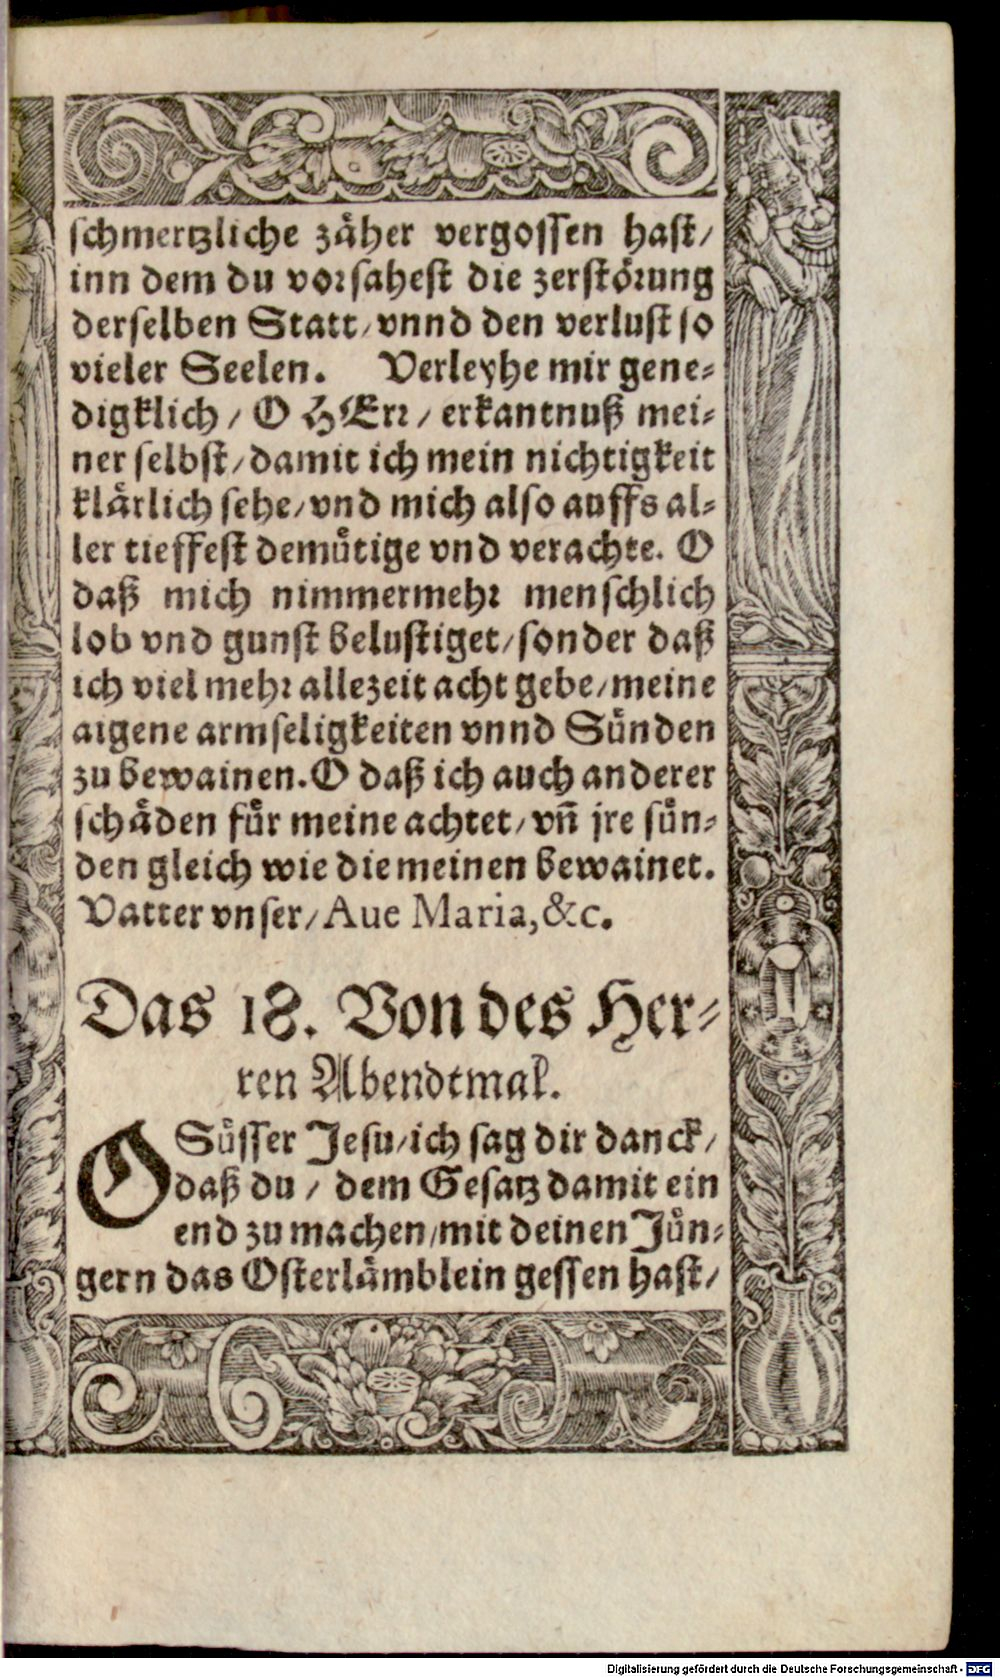 schmertzliche zäher vergossen hast/
inn dem du vorsahest die zerstörung
derselben Statt/ vnnd den verlust so
vieler Seelen. Verleyhe mir gene-
digklich / O HErr / erkantnuß mei-
ner selbst/ damit ich mein nichtigkeit
klärlich sehe/ vnd mich also auffs al-
ler tieffest demütige vnd verachte. O
daß mich nimmermehr menschlich
lob vnd gunst belustiget/ sonder daß
ich viel mehr allezeit acht gebe/ meine
aigene armseligkeiten vnnd Sünden
zu bewainen. O daß ich auch anderer
schäden für meine achtet/ vñ jre sün-
den gleich wie die meinen bewainet.
Vatter vnser/ Aue Maria, &c.
Das 18. Von des Her-
ren Abendtmal.
O Süsser Jesu/ ich sag dir danck/
daß du / dem Gesatz damit ein
end zu machen/ mit deinen Jün-
gern das Osterlämblein gessen hast/
Digitalisierung gefördert durch die Deutsche Forschungsgemeinschaft - DFG